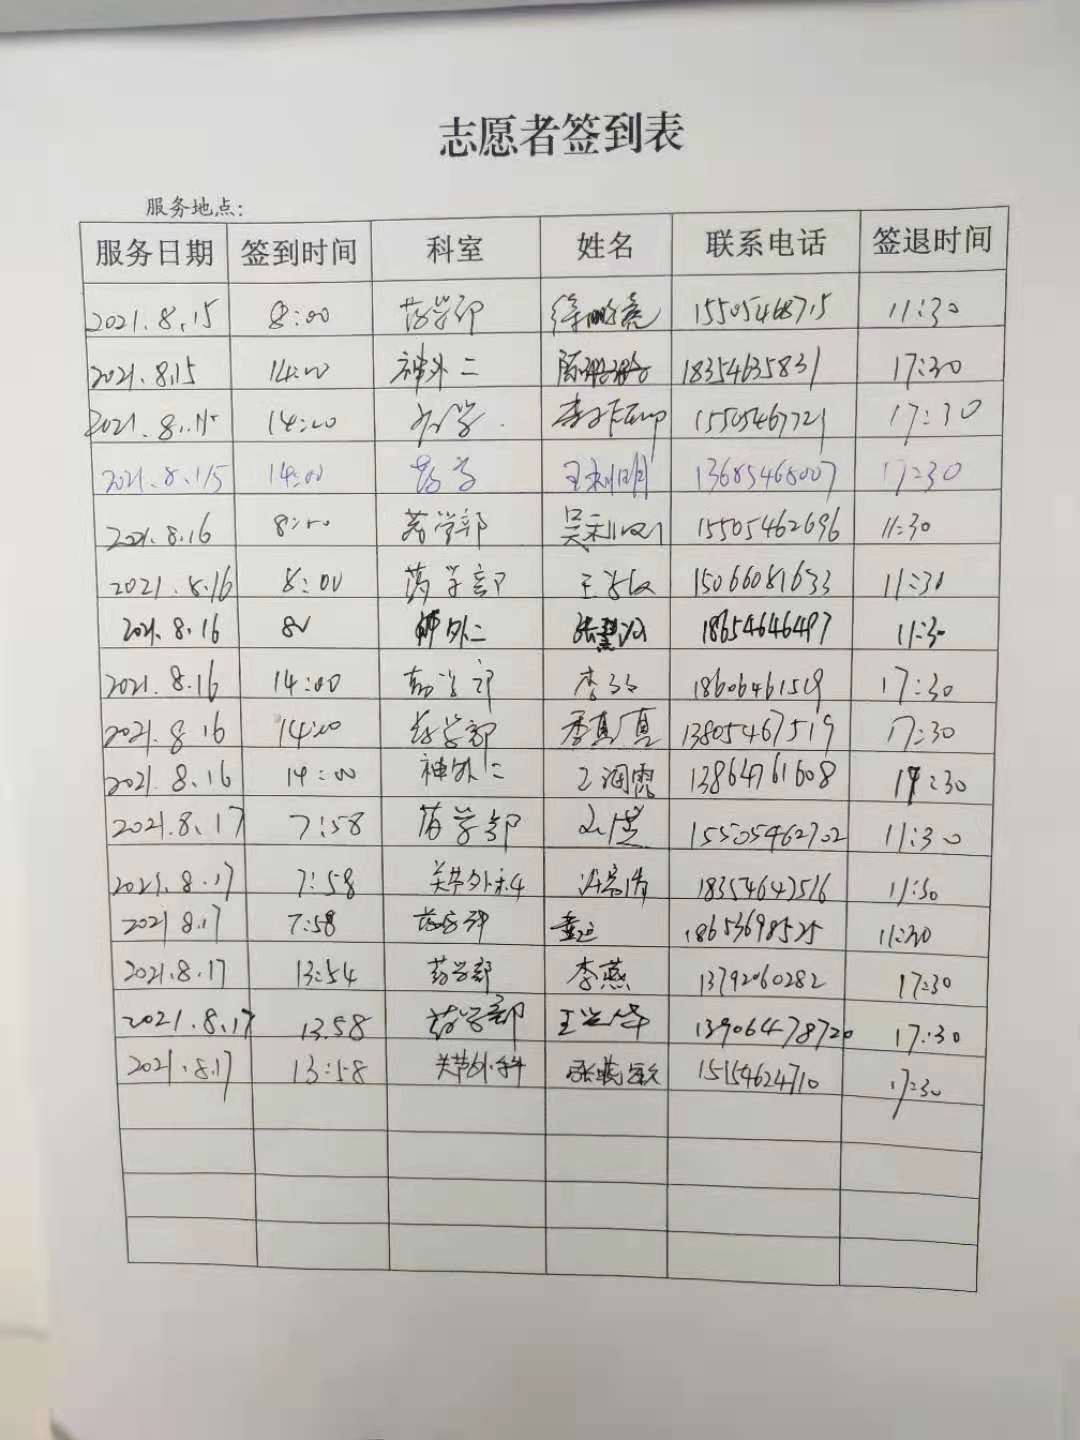 志愿者签到表
服务地点:
服务日期 签到时间 科室 姓名 联系电话 签退时间
2021.8.15 8:00 药学部 15505468715 11:30
2021.8.15 14:00 神外二 18354635831 17:30
2021.8.15 14:00 15505467721 17:30
2021.8.15 14:00 药学 王利明 13685468007 17:30
2021.8.16 8:00 药学部 15505462696 11:30
2021.8.16 8:00 药学部 15066081633 11:30
2021.8.16 神外二 18654646497 11:30
2021.8.16 14:00 药学部 18606461519 17:30
2021.8.16 14:00 药学部 季真真 13805467519 17:30
2021.8.16 14:00 神外二 王润霞 13864761608 17:30
2021.8.17 7:58 药学部 15505462702 11:30
2021.8.17 7:58 关节外科 18354642516 11:30
2021 8.17 7:58 18653698525 11:30
2021.8.17 13:54 药学部 李燕 13792060282 17:30
2021.8.17 13.58 药学部 13906478720 17:30
2021.8.17 13:58 关节外科 15154624710 17:30